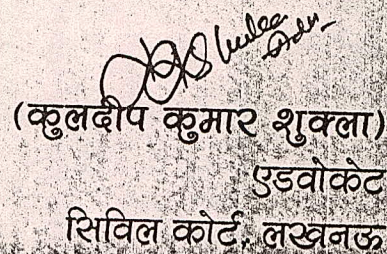 (कुलदीप कुमार शुक्ला)
एडवोकेट
सिविल कोर्ट, लखनऊ